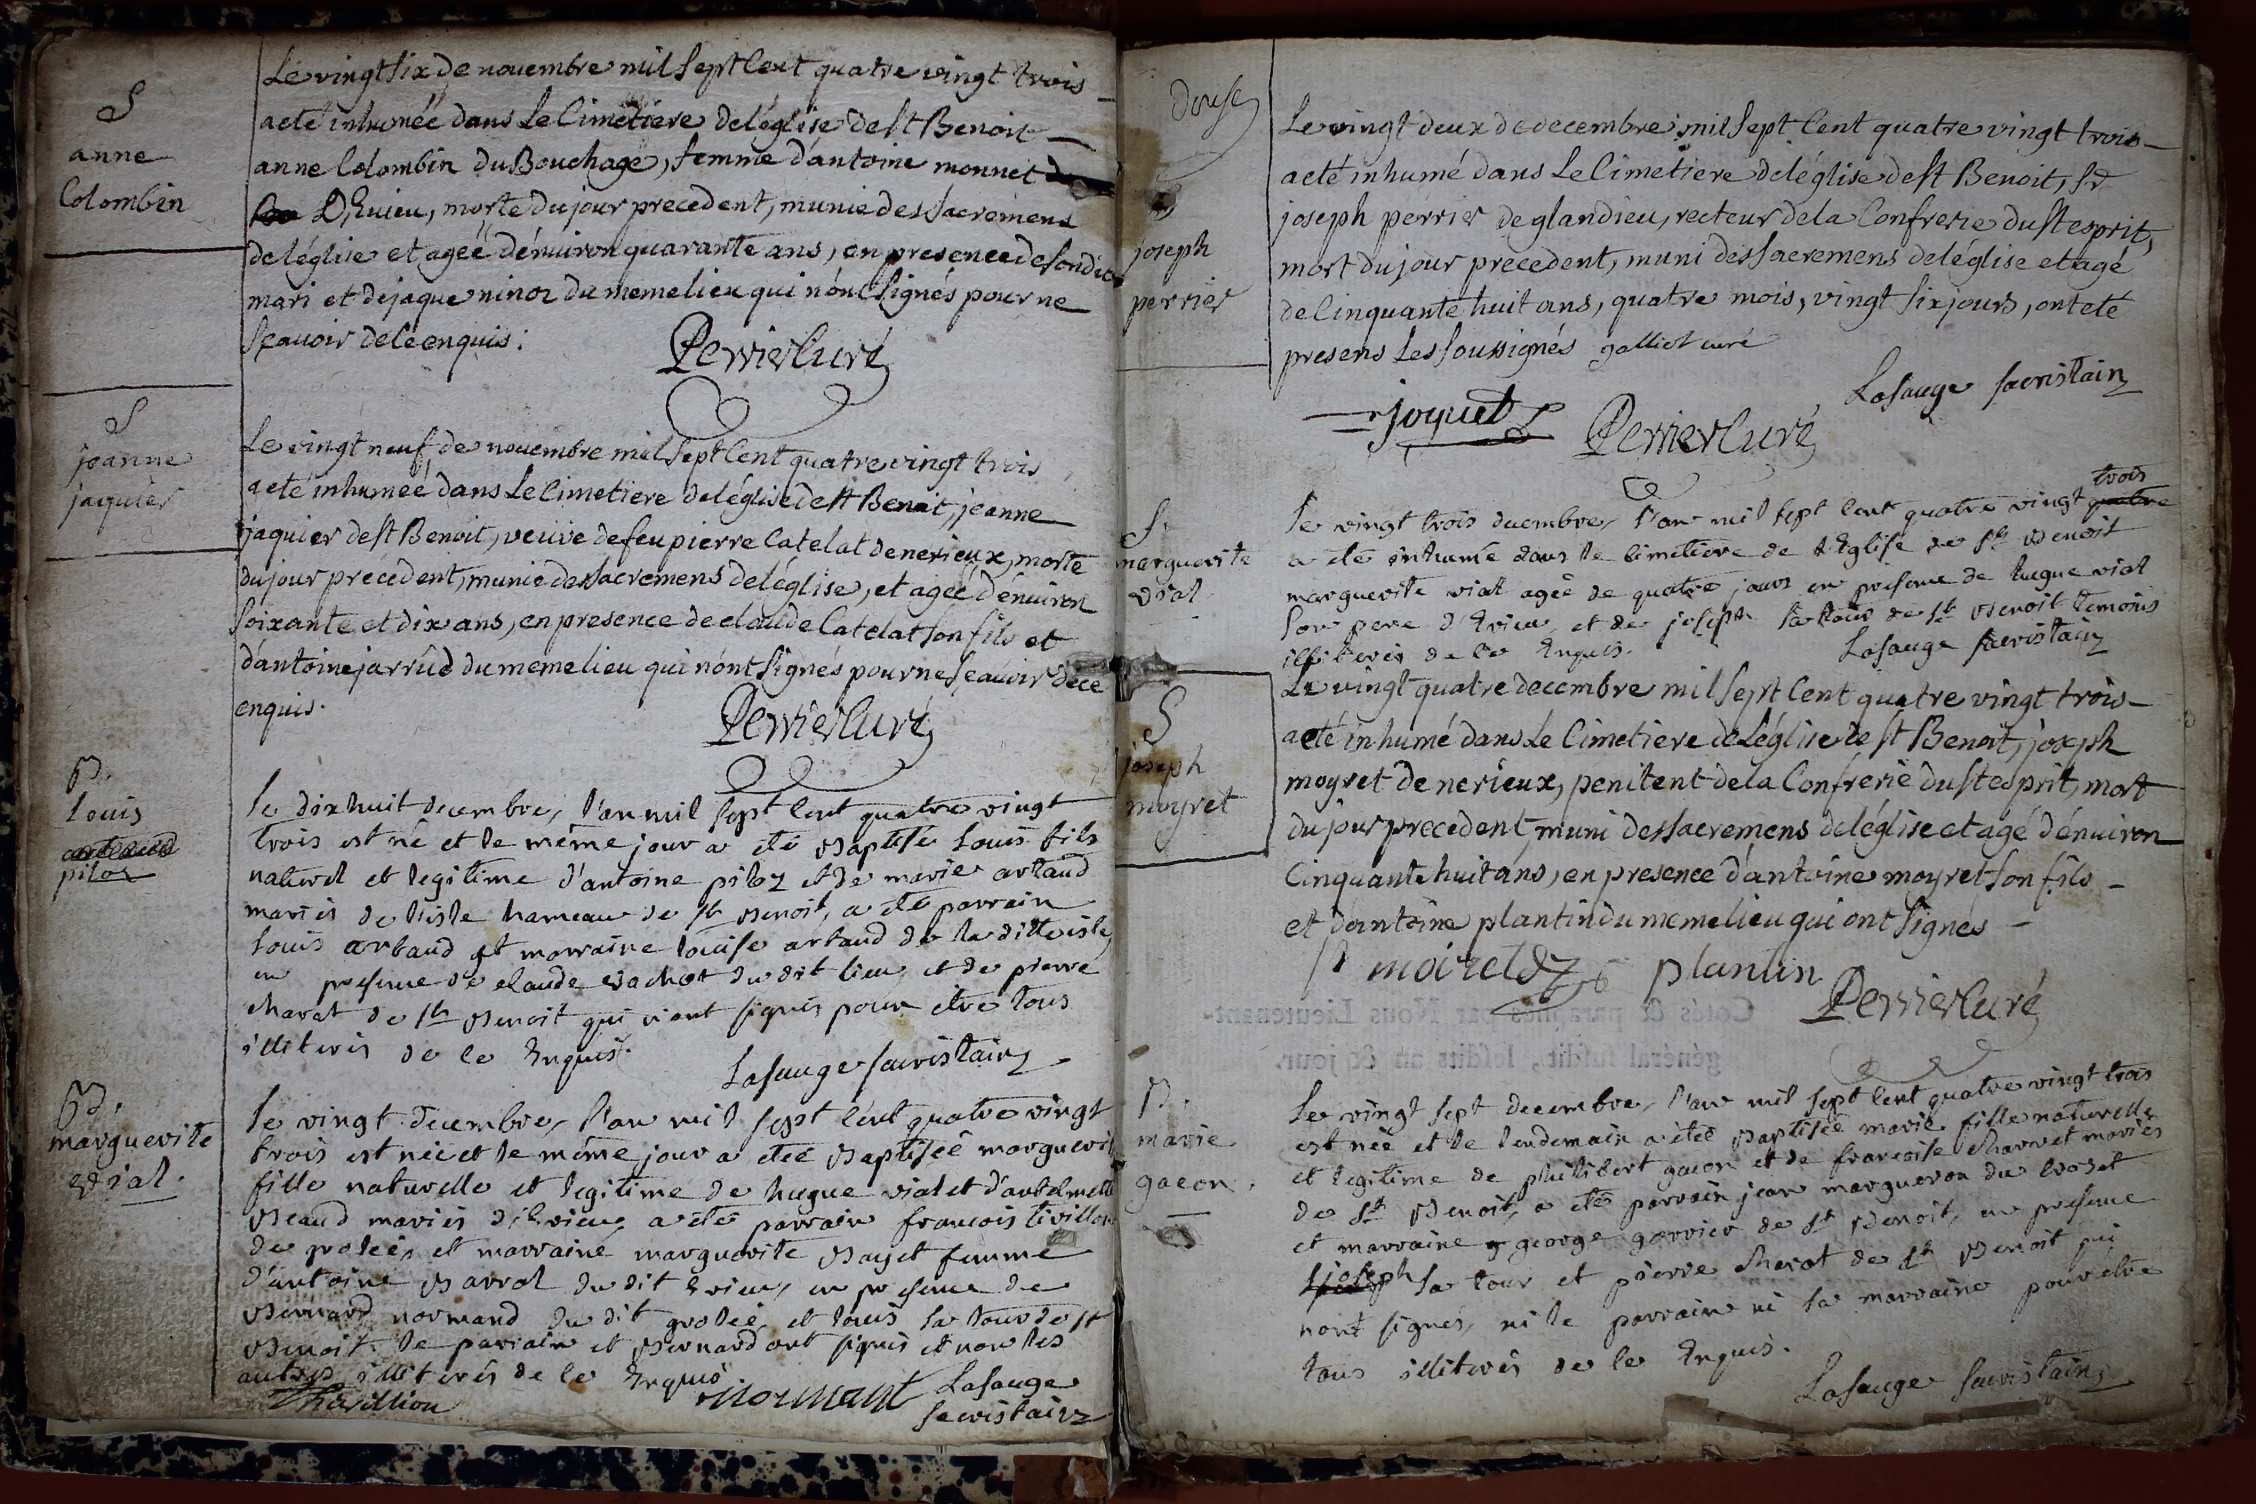 S
anne
Colombin
Le vingt six de novembre mil sept Cent quatre vingt trois
a eté inhumée dans Le Cimetiere de léglise de st Benoit
anne Colombin du Bouchage, femme d'antoine monnet
D'Evieu, morte du jour precedent, munie des sacremens
de léglise et agée d'énviron quarante ans, en presence de sondit
mari et de jaque ninoz du meme lieu qui n'ont signés pour ne
sçavoir de ce enquis.
Perrier Curé
S
jeanne
jaquier
Le vingt neuf de novembre mil sept Cent quatre vingt trois
a eté inhumée dans Le Cimetiere de léglise de st Benoit, jeanne
jaquier de st Benoit, veuve de feu pierre Catelat de nerieux, morte
du jour précédent, munie des sacremens de léglise, et agée d'énviron
soixante et dix ans, en presence de claude Catelat son fils et
d'antoine jarrud du meme lieu qui n'ont signés pour ne sçavoir de ce
enquis.
Perrier Curé
B.
Louis
artaud
piloz
le dix huit decembre, l'an mil sept cent quatre vingt
trois est né et le même jour a été Baptisé Louis fils
naturel et legitime d'antoine piloz et de marie artaud
mariés de l'isle hameau de st Benoit, a été parrain
Louis artaud et marraine louise artaud de la ditte isle
en presence de claude vachot du dit lieu, et de pierre
charat de st Benoit qui n'ont signés pour être tous
illiterés de ce Enquis.
Lasauge sacristain
B.
marguerite
vial.
le vingt decembre, l'an mil sept cent quatre vingt
trois est née et le même jour a eteé Baptiseé marguerit
fille naturelle et legitime de hugue vial et d'antelmette
Beaud mariés d'Evieu, a été parrain francois tivillon
de groleé, et marraine marguerite Bayet femme
d'antoine Barral du dit Evieu, en presence de
Bernard normand du dit groleé, et louis la tour de st
Benoit. le parrain et Bernard ont signés et non les
autres illiterés de ce Enquis
Thivillion
normant
Lasauge
sacristain
douse
joseph
perrier
Le vingt deux de decembre, mil sept Cent quatre vingt trois
a eté inhumé dans Le Cimetiere de léglise de st Benoit, sr
joseph perrier de glandieu, recteur de la Confrerie du st esprit,
mort du jour precedent, muni des sacremens de léglise et agé
de Cinquante huit ans, quatre mois, vingt six jours, ont eté
presens Les soussignés galliot curé
Lasauge sacristain
joquet
Perrier Curé
S.
marguerite
vial.
le vingt trois decembre, l'an mil sept cent quatre vingt quatre trois
a été inhumée dans le cimetiere de l'Eglise de st Benoit
marguerite vial ageé de quatre jours en presence de hugue vial
son pere d'Evieu, et de joseph la tour de st Benoit temoins
illiterés de ce Enquis.
Lasauge sacristain
S
joseph
moyret
Le vingt quatre decembre mil sept Cent quatre vingt trois
a eté inhumé dans Le Cimetiere de Léglise de st Benoit, joseph
moyret de nerieux, penitent de la Confrerie du st esprit, mort
du jour precedent, muni des sacremens de léglise et agé d'énviron
Cinquante huit ans, en presence d'antoine moyret son fils
et d'antoine plantin du meme lieu qui ont signés
moiret
plantin
Perrier Curé
Cotés & paraphés par Nous Lieutenant-
général susdit, lesdits an & jour.
B.
marie
gacon.
Le vingt sept decembre, l'an mil sept cent quatre vingt trois
est née et le lendemain a eteé Baptiseé marie fille naturelle
et legitime de philibert gacon et de francoise charvet mariés
de st Benoit, a été parrain jean margueron du Crozet
et marraine george garrier de st Benoit, en presence
joseph la tour et pierre charat de st Benoit qui
n'ont signés, ni le parrain ni la marraine pour être
tous illiterés de ce Enquis.
Lasauge sacristain